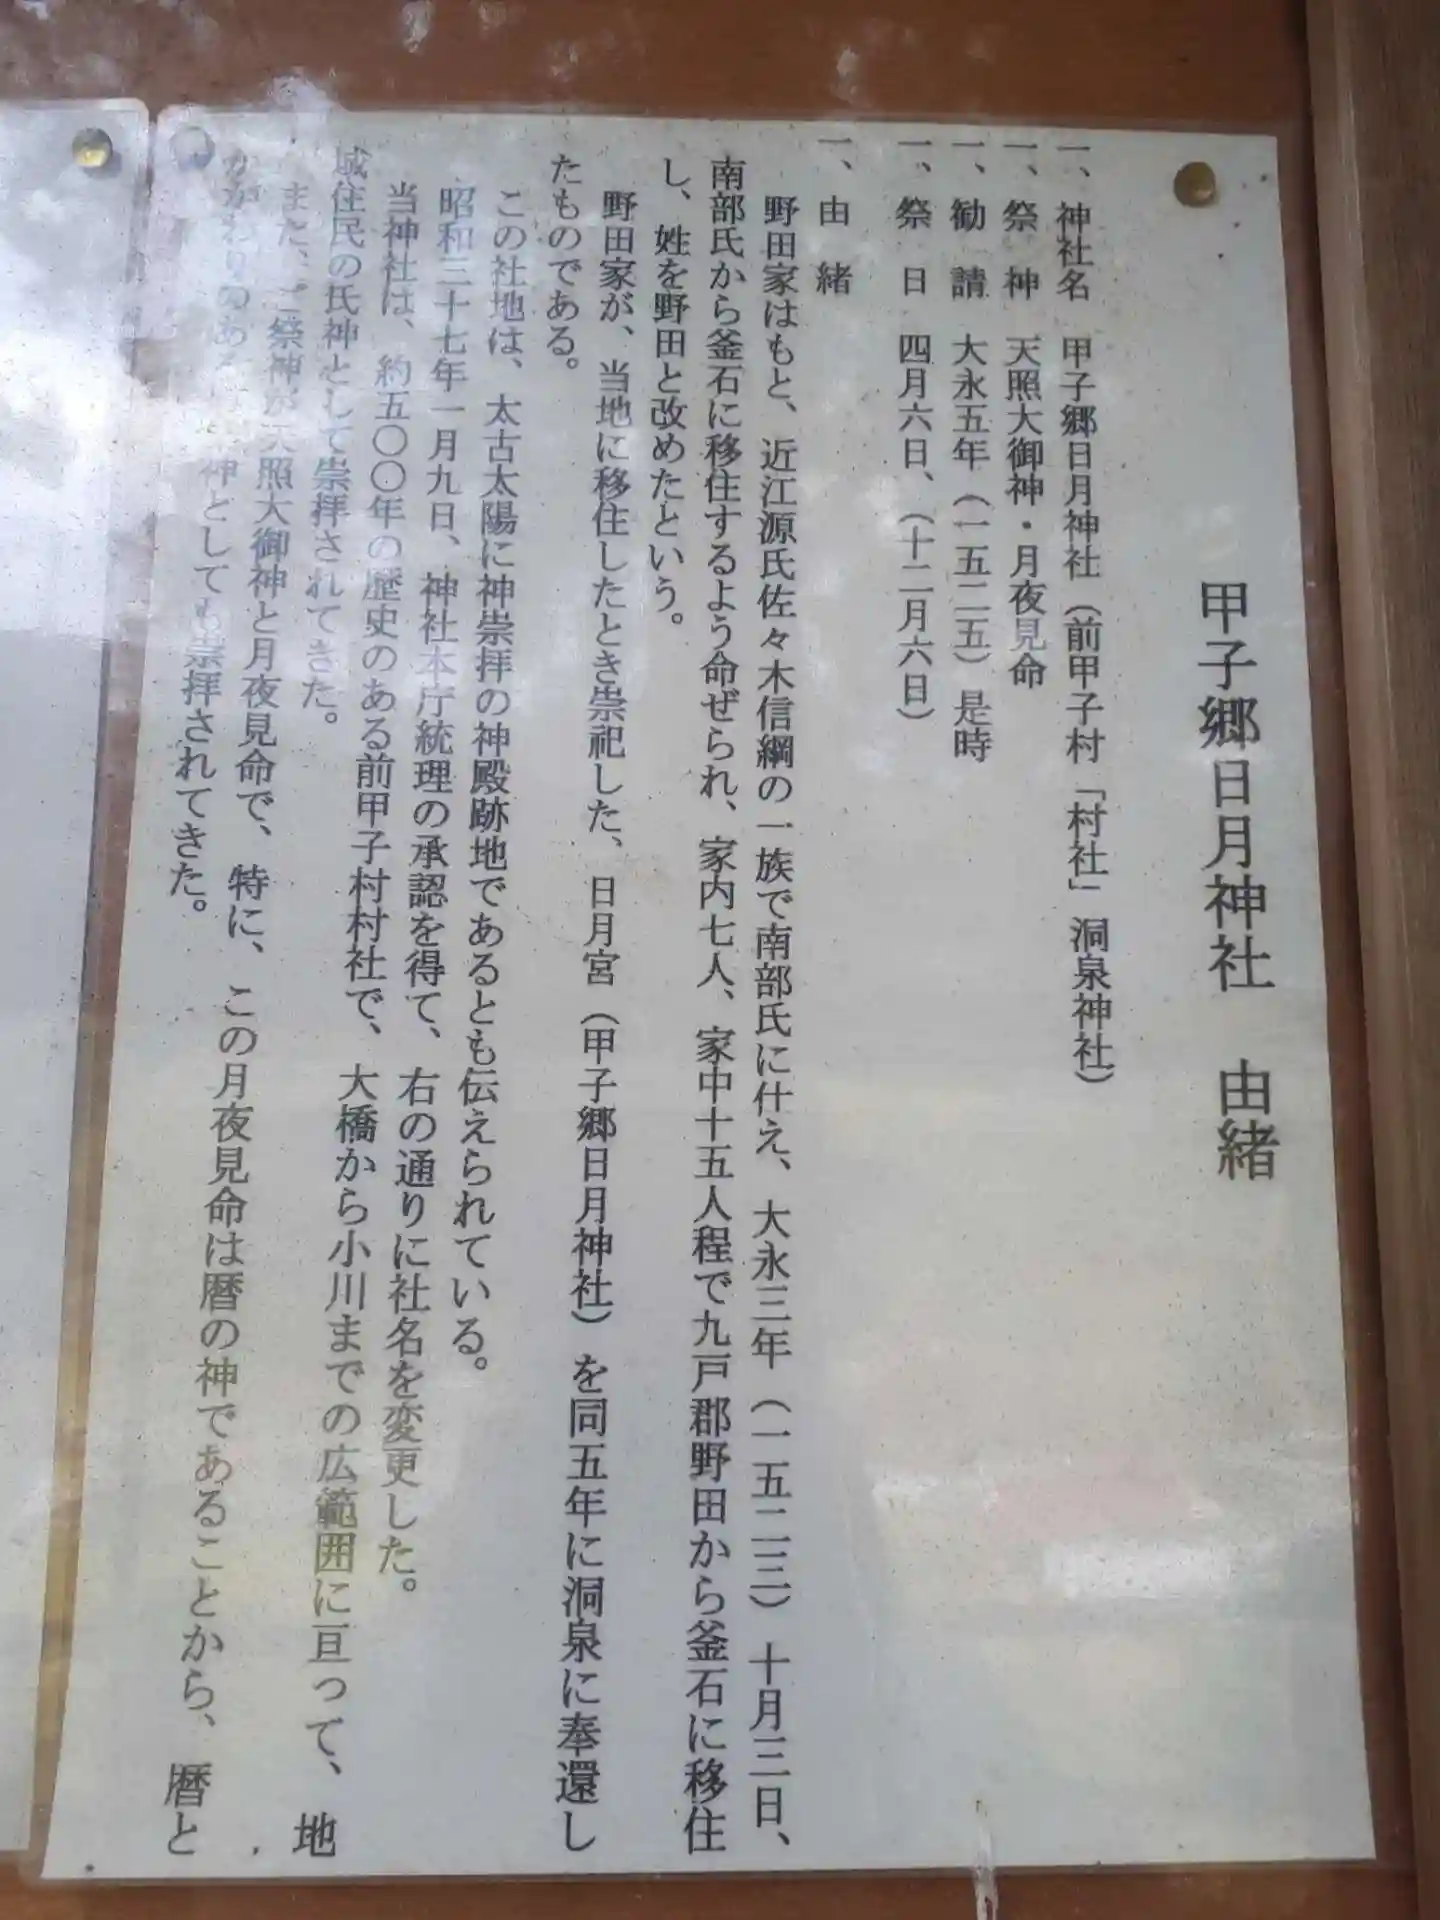 甲子郷日月神社　由緒
一、神社名　甲子郷日月神社（前甲子村「村社」洞泉神社）
一、祭　神　天照大御神・月夜見命
一、勧　請　大永五年（一五二五）是時
一、祭　日　四月六日、（十二月六日）
一、由　緒
野田家はもと、近江源氏佐々木信綱の一族で南部氏に仕え、大永三年（一五二三）十月三日、
南部氏から釜石に移住するよう命ぜられ、家内七人、家中十五人程で九戸郡野田から釜石に移住
し、姓を野田と改めたという。
野田家が、当地に移住したとき崇祀した、日月宮（甲子郷日月神社）を同五年に洞泉に奉還し
たものである。
この社地は、太古太陽に神崇拝の神殿跡地であるとも伝えられている。
昭和三十七年一月九日、神社本庁統理の承認を得て、右の通りに社名を変更した。
当神社は、約五〇〇年の歴史のある前甲子村村社で、大橋から小川までの広範囲に亘って、地
域住民の氏神として崇拝されてきた。
また、ご祭神が天照大御神と月夜見命で、特に、この月夜見命は暦の神であることから、暦と
かかわりのある 神としても崇拝されてきた。